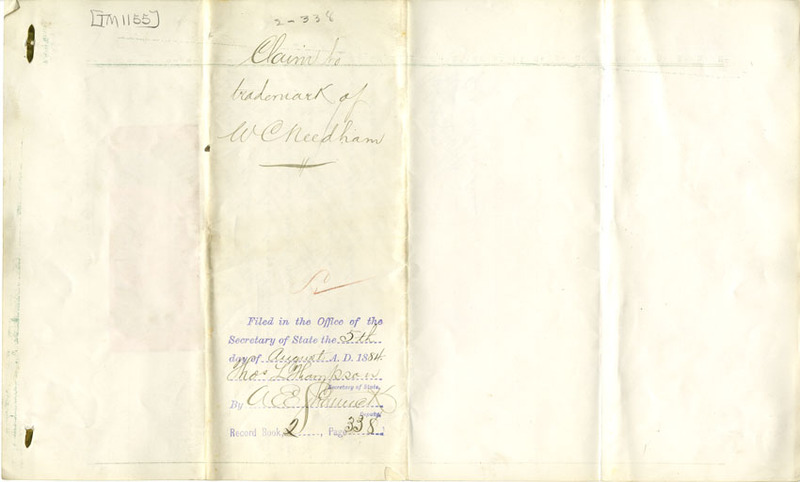 [TM1155]
2-338
Claim to
trademark of
W C Needham
Filed in the Office of the
Secretary of State the 5th
day of August A. D. 1884
Thos L Thompson
Secretary of State,
By A E
Deputy
Record Book, 2, Page 338